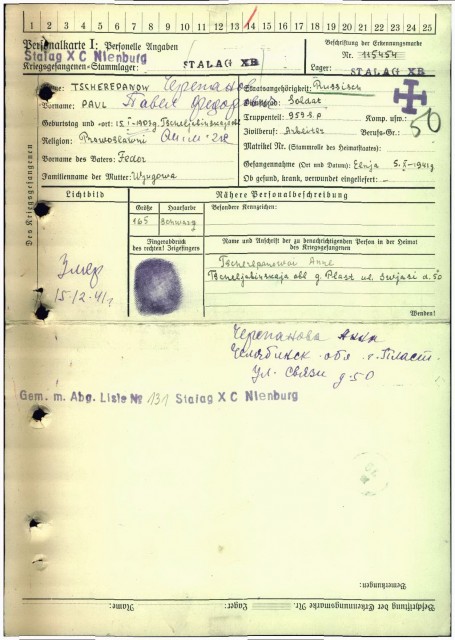 1 2 3 4 5 6 7 8 9 10 11 12 13 14 15 16 17 18 19 20 21 22 23 24 25
Personalkarte I: Personelle Angaben
Stalag X C Nienburg
Kriegsgefangenen-Stammlager: STALAG XB
Beschriftung der Erkennungsmarke
Nr. 115454
Lager: STALAG XB
Des Kriegsgefangenen
Name: TSCHEREPANOW Черепанов
Vorname: PAUL Павел Федор
Geburtstag und -ort:
Religion: Prawoslawni
Vorname des Vaters: Fedor
Familienname der Mutter: Uzugowa
Staatsangehörigkeit: Russisch
Dienstgrad: Soldat
Truppenteil: 959 S.p. Komp. usw.:
50
Zivilberuf: Arbeiter Berufs-Gr.:
Matrikel Nr. (Stammrolle des Heimatstaates):
Gefangennahme (Ort und Datum): Elnja 5.X-1941g
Ob gesund, krank, verwundet eingeliefert:
Lichtbild
Nähere Personalbeschreibung
Größe Haarfarbe Besondere Kennzeichen:
165 Schwarz
Fingerabdruck
des rechten! Zeigefingers
Name und Anschrift der zu benachrichtigenden Person in der Heimat
des Kriegsgefangenen
Tscherepanowa Anne
Tscheljabinskaja obl g. Plast ul. Swjasi d. 50
Умер
15-12-41г
Wenden!
Черепанова Анна
Челябинск обл г. Пласт
ул. Связи д-50
Gem. m. Abg. Liste № 131 Stalag X C Nienburg
Bemerkungen:
Name: Lager: Beschriftung der Erkennungsmarke Nr.